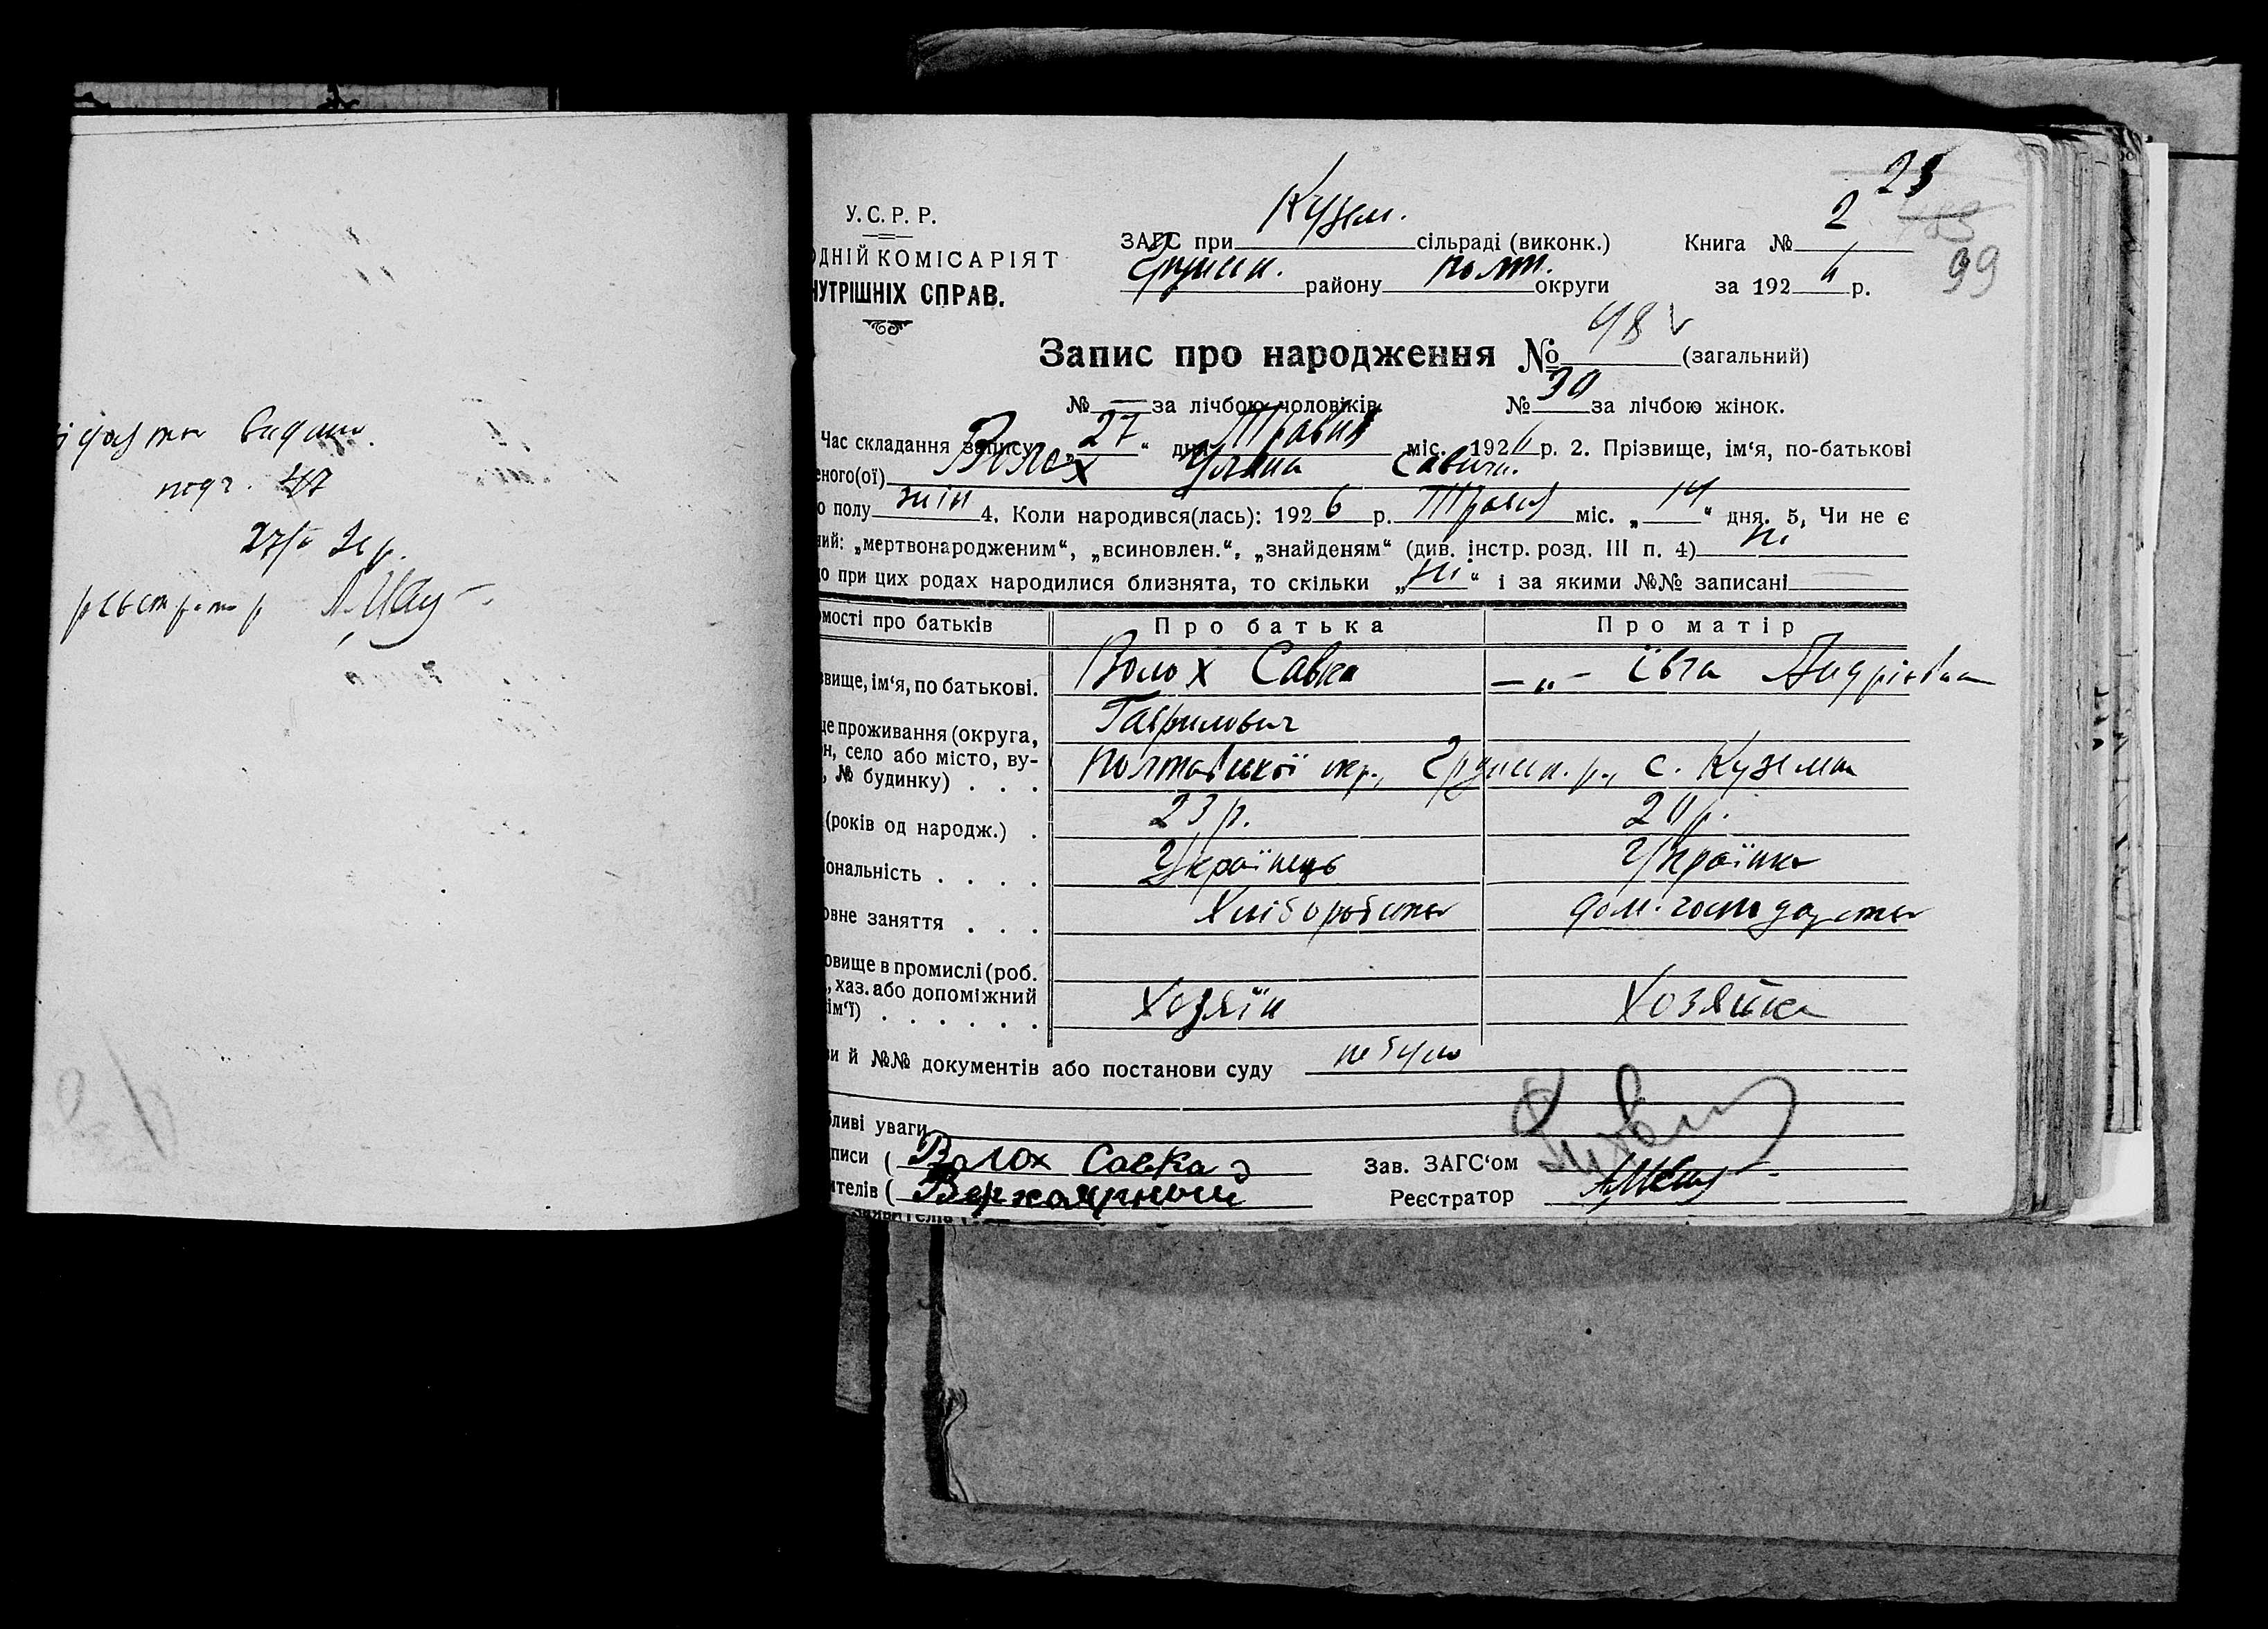 видано
27/V 26 р.
23
У.С.Р.Р.
ОДНІЙ КОМІСАРІЯТ
НУТРІШНІХ СПРАВ.
ЗАГС при Кузем. сільраді (виконк.)
Книга № 2
99
Грунськ. району Полт. округи
за 1926 р.
Запис про народження № 48 (загальний)
№ — за лічбою чоловіків.
№ 30 за лічбою жінок.
Час складання запису „27“ дня Травня міс. 1926 р. 2. Прізвище, ім‘я, по-батькові
еного(ої) Волох Уляна Савичн.
о полу жін 4. Коли народився(лась): 1926 р. Травня міс. „14“ дня. 5, Чи не є
ний: „мертвонародженим“, „всиновлен.“, „знайденям“ (див. інстр. розд. III п. 4) ні
о при цих родах народилися близнята, то скільки „ні“ і за якими №№ записані
омості про батьків
Про батька
Про матір
звище, ім‘я, по батькові.
Волох Савка
—„— Івга Андріївна
Гаврилович
це проживання (округа,
н, село або місто, ву-
, № будинку) . . .
Полтавської окр., Грунськ. р., с. Куземин
(років од народж.) .
23 р.
20 р.
іональність . . . .
Українець
Українка
овне заняття . . .
Хліборобство
дом. господарство
овище в промислі (роб.
, хаз. або допоміжний
ім‘ї) . . . . . .
Хозяїн
Хозяйка
ви й №№ документів або постанови суду не було
бливі уваги
писи ( Волох Савка
Зав. ЗАГС‘ом
ителів (
Реєстратор